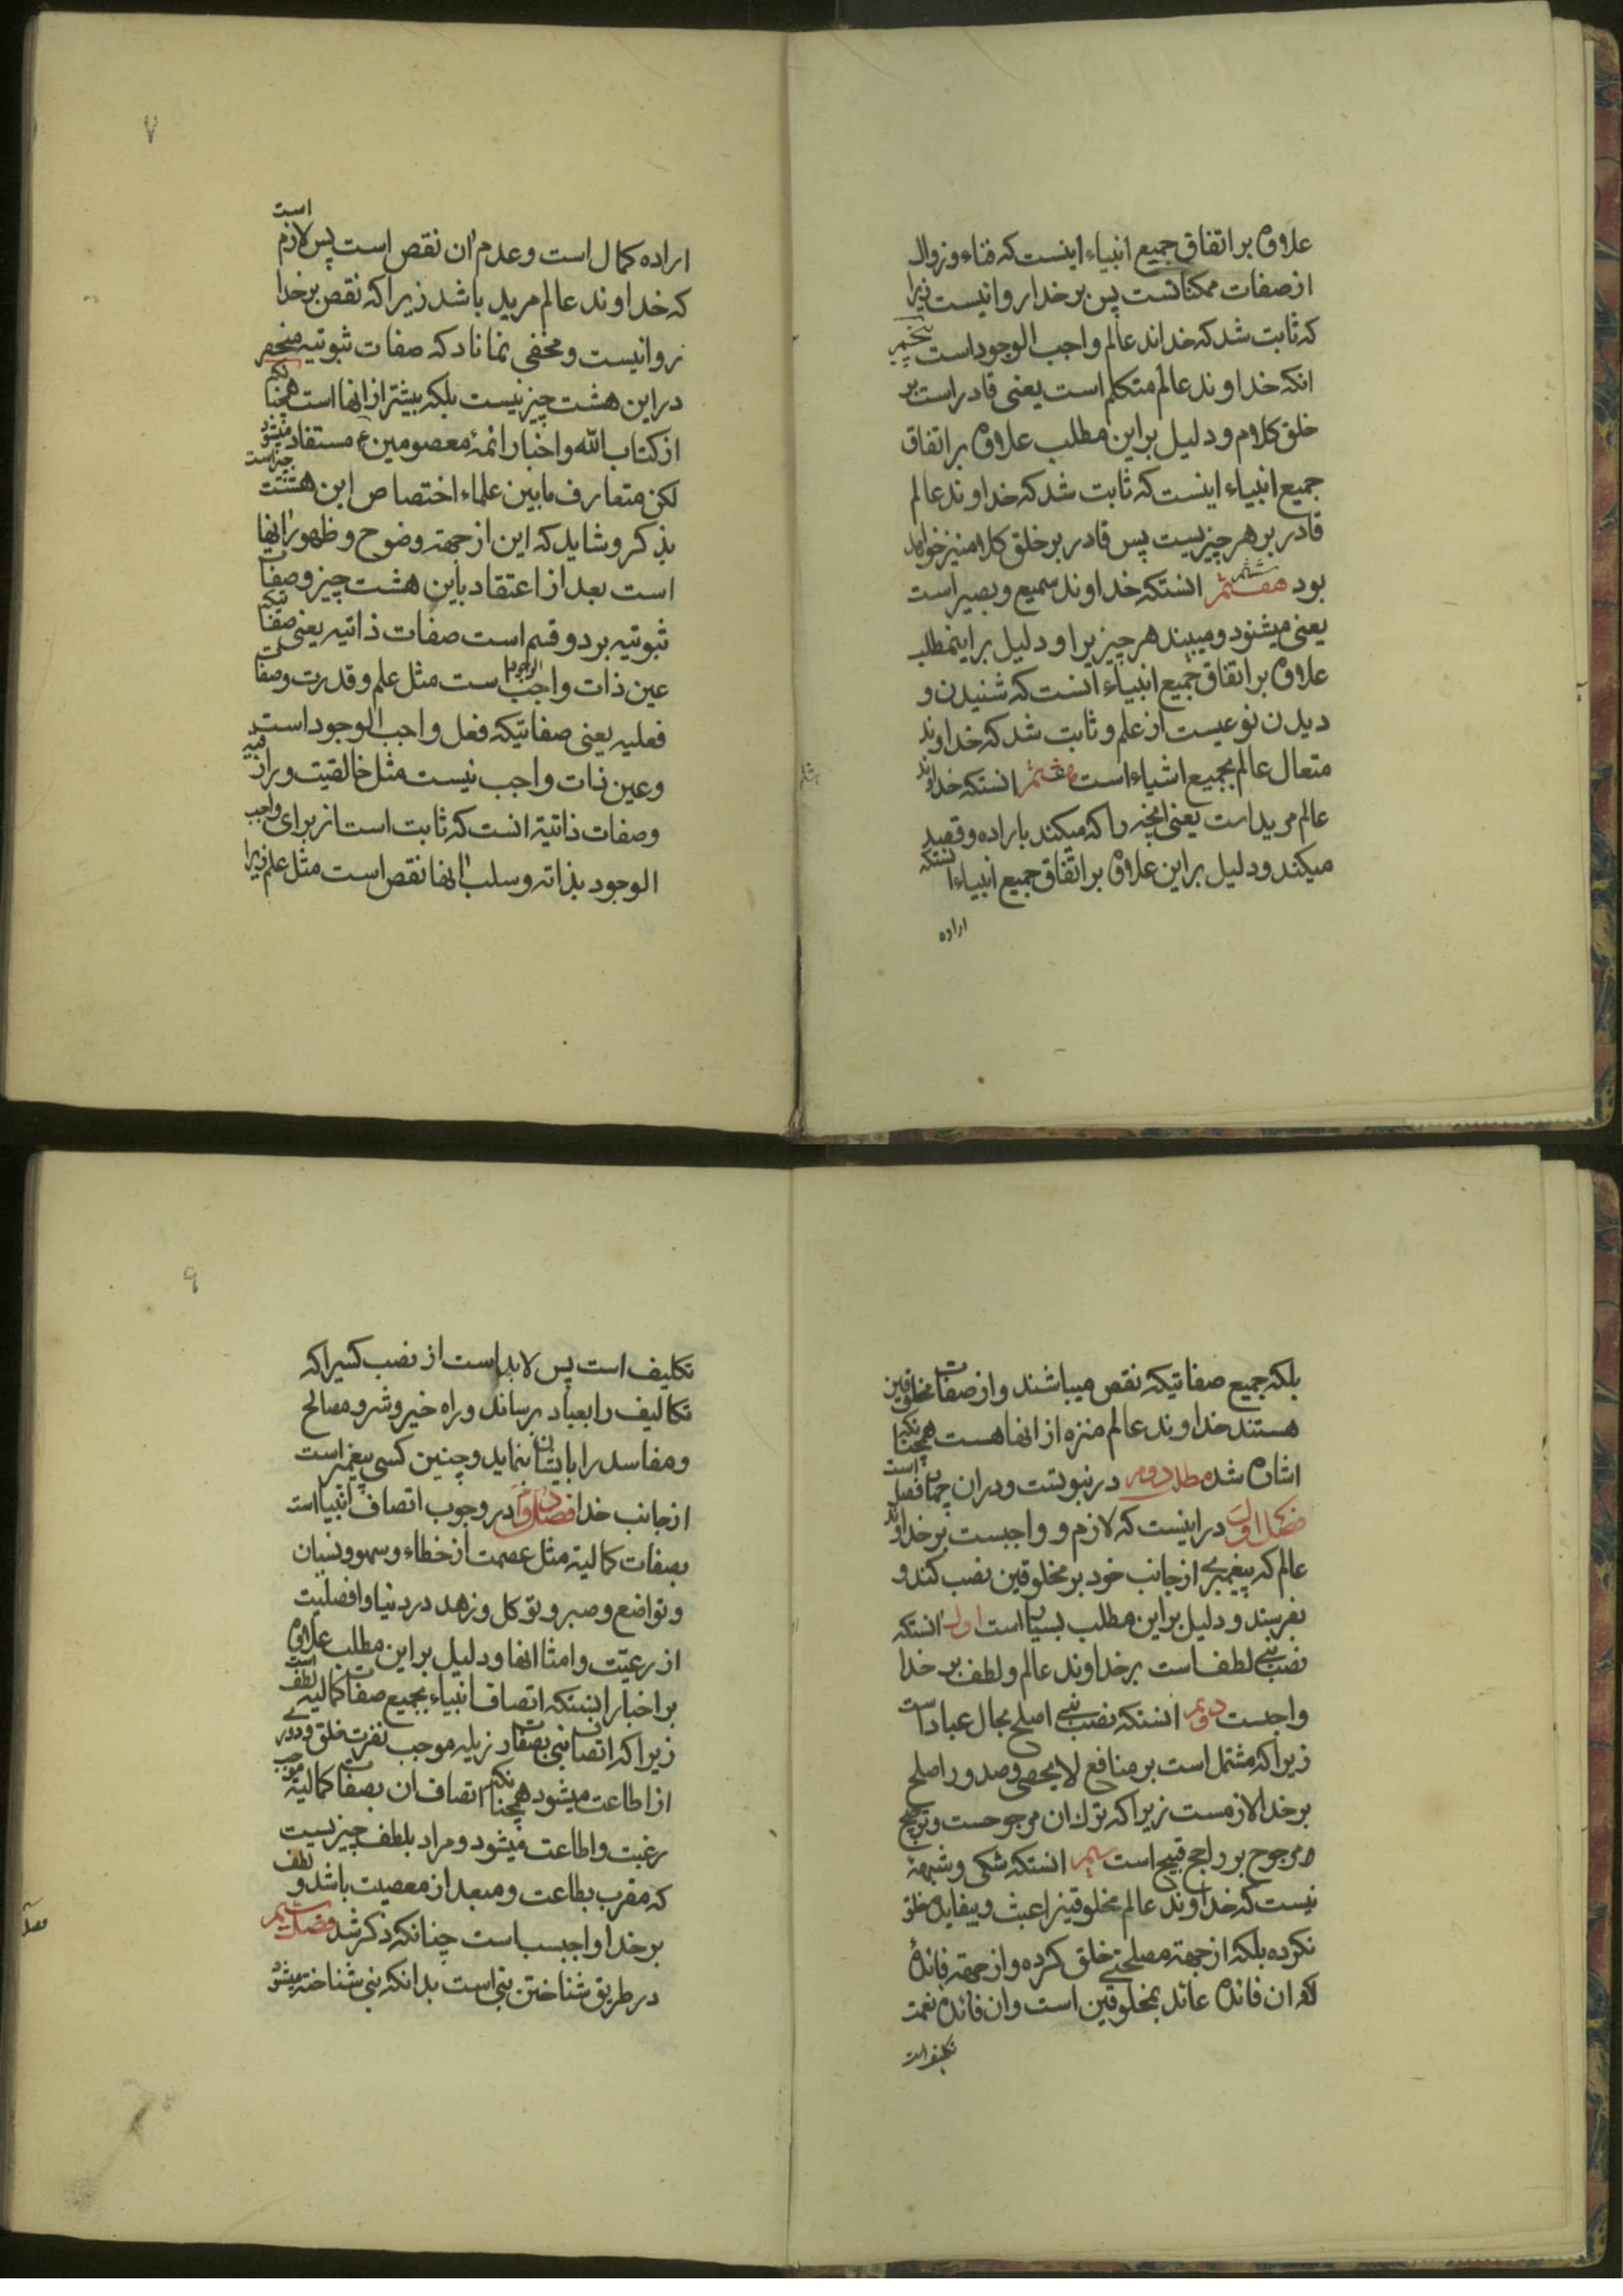 علاوه بر اتفاق جمیع انبیاء اینست که فناء و زوال
از صفات ممکناتست پس بر خدا روا نیست زیرا
که ثابت شد که خداند عالم واجب الوجود است پنجم
انکه خداوند عالم متکلم است یعنی قادر است بر
خلق کلام و دلیل بر این مطلب علاوه بر اتفاق
جمیع انبیاء اینست که ثابت شد که خداوند عالم
قادر بر هر چیزیست پس قادر بر خلق کلام نیز خواهد
بود هفتم ششم انستکه خداوند سمیع و بصیر است
یعنی میشنود و میبیند هر چیز یرا و دلیل بر اینمطلب
علاوه بر اتفاق جمیع انبیاء انست که شنیدن و
دیدن نوعیست از علم و ثابت شد که خداوند
متعال عالم بجمیع اشیاء است هفتم انستکه خداوند
عالم مرید است یعنی انچه را که میکند باراده و قصد
میکند و دلیل بر این علاوه بر اتفاق جمیع انبیاء انستکه
اراده
۷
اراده کمال است و عدم ان نقص است پس لازم است
که خداوند عالم مرید باشد زیرا که نقص بر خدا
روا نیست و مخفی نماناد که صفات ثبوتیه منحصر
در این هشت چیز نیست بلکه بیشتر از انها است همچنانکه
از کتاب الله و اخبار ائمهٔ معصومین ع مستفاد میشود
لکن متعارف مابین علماء اختصاص این هشت چیز است
بذکر و شاید که این از جهته وضوح و ظهور انها
است بعد از اعتقاد باین هشت چیز و صفات
ثبوتیه بر دو قسم است صفات ذاتیه یعنی صفاتیکه
عین ذات واجب الوجود است مثل علم و قدرت و صفات
فعلیه یعنی صفاتیکه فعل واجب الوجود است
و عین ذات واجب نیست مثل خالقیت و رازقیه
و صفات ذاتیه انست که ثابت است از برای واجب
الوجود بذاته و سلب انها نقص است مثل علم زیرا
بلکه جمیع صفاتیکه نقص میباشند و از صفات مخلوقین
هستند خداوند عالم منزه از انها هست همچنانکه
اشاره شد مطلب دوم در نبوتست و دران چهار فصل است
فصل اول در اینست که لازم و واجبست بر خداوند
عالم که پیغمبری از جانب خود بر مخلوقین نصب کند و
بفرستد و دلیل بر این مطلب بسیار است اول انستکه
نصب نبی لطف است بر خداوند عالم و لطف بر خدا
واجبست دویم انستکه نصب نبی اصلح بحال عباد است
زیرا که مشتمل است بر منافع لا یحصی و صدور اصلح
بر خدا لازمست زیرا که ترك ان مرجوحست و ترجیح
مرجوح بر راجح قبیح است سیم انستکه شکی و شبههٔ
نیست که خداوند عالم مخلوقینرا عبث و بیفایده خلق
نکرده بلکه از جهته مصلحتی خلق کرده و از جهته فائدهٔ
که ان فائده عائد بمخلوقین است و ان فائده نعمت
تکلیف است
۹
تکلیف است پس لابد است از نصب کسیرا که
تکالیف را بعباد برساند و راه خیر و شر و مصالح
و مفاسد را بایشان بنماید و چنین کسی پیغمبر است
از جانب خدا فصل دوم در وجوب اتصاف انبیا است
بصفات کمالیه مثل عصمت از خطاء و سهو و نسیان
و تواضع و صبر و توکل و زهد در دنیا و افضلیت
از رعیت و امثال انها و دلیل بر این مطلب علاوه
بر اخبار انستکه اتصاف انبیاء بجمیع صفات کمالیه لطف است
زیرا که اتصاف نبی بصفات رزیله موجب نفرت خلق و دوری
از اطاعت میشود همچنانکه اتصاف ان بصفات کمالیه موجب
رغبت و اطاعت میشود و مراد بلطف چیزیست
که مقرب بطاعت و مبعد از معصیت باشد و لطف
بر خدا واجبست چنانکه ذکر شد فصل سیم
در طریق شناختن نبی است بدانکه نبی شناخته میشود